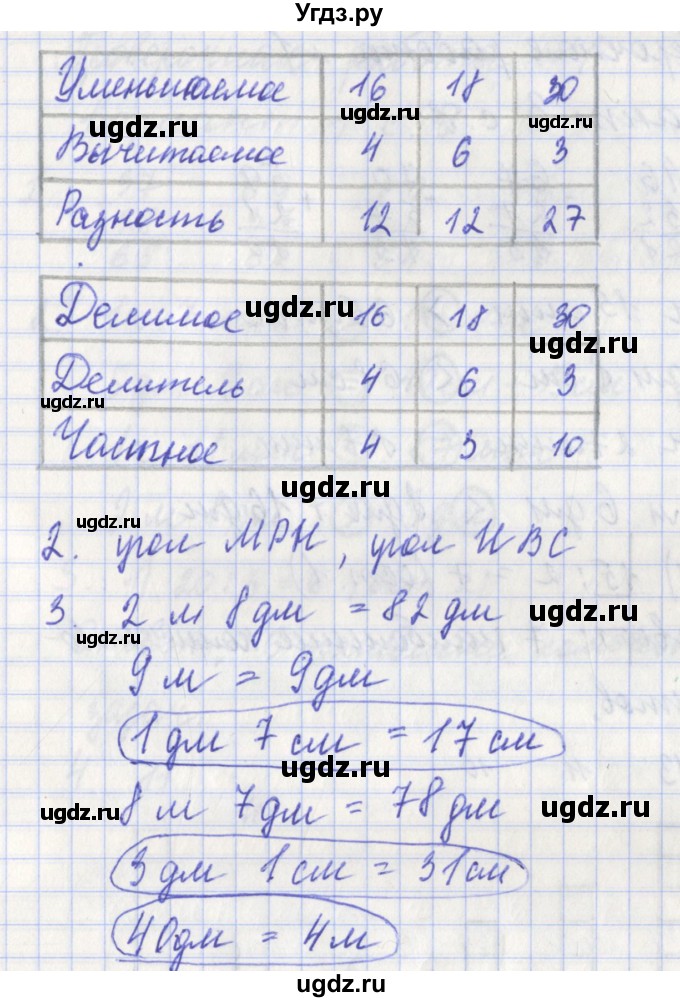 Угдз.ру
Уменьшаемое 16 18 30
ugdz.ru ugdz.ru ugdz.ru
Вычитаемое 4 6 3
Разность 12 12 27
Делимое ugdz.ru 16 18 30
ugdz.ru
Делитель 4 6 3
ugdz.ru
Частное 4 3 10
ugdz.ru
ugdz.ru
2. угол МРН, угол НВС
3. 2 м 8 дм = 82 дм
ugdz.ru ugdz.ru
9 м = 9 дм
1 дм 7 см = 17 см
ugdz.ru
8 м 7 дм = 78 дм
ugdz.ru ugdz.ru
3 дм 1 см = 31 см
40 дм = 4 м
ugdz.ru